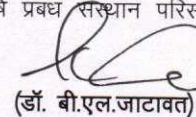 प्रबंध संस्थान परिस
(डॉ. बी.एल.जाटावत)